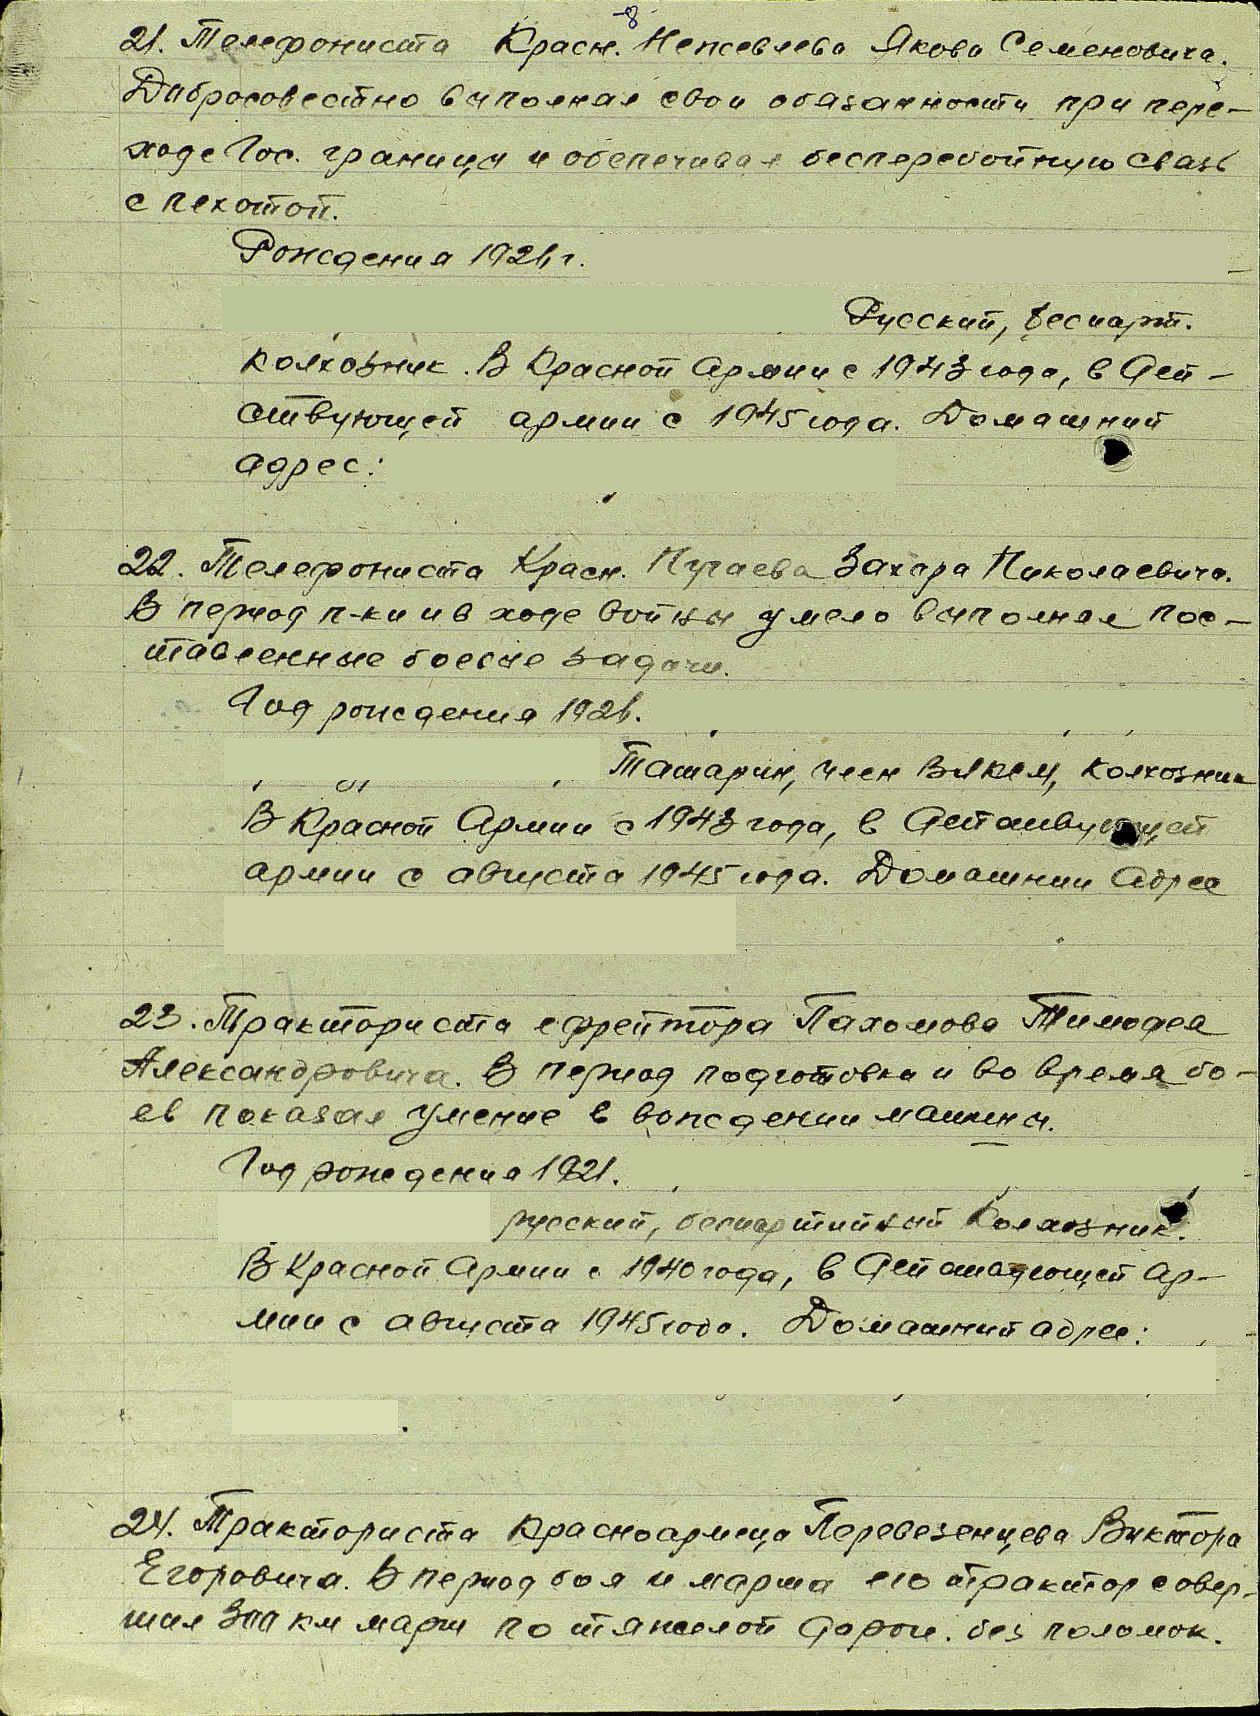 21. Телефониста Красн. Непсевлева Якова Семеновича.
Добросовестно выполнял свои обязанности при пере-
ходе Гос. границы и обеспечивал бесперебойную связь
с пехотой.
Рождения 1926 г.
Русский, беспарт.
колхозник. В Красной Армии с 1943 года, в дей-
ствующей армии с 1945 года. Домашний
адрес:
22. Телефониста Красн. Пугаева Захара Николаевича.
В период п-ки и в ходе войны умело выполнял пос-
тавленные боевые задачи.
Год рождения 1926.
Татарин, член ВЛКСМ, колхозник
В Красной Армии с 1943 года, в действующей
армии с августа 1945 года. Домашний адрес
23. Тракториста ефрейтора Пахомова Тимофея
Александровича. В период подготовки и во время бо-
ев показал умение в вождении машины.
Год рождения 1921.
русский, беспартийный колхозник.
В Красной Армии с 1940 года, в действующей ар-
мии с августа 1945 года. Домашний адрес:
24. Тракториста красноармейца Перевезенцева Виктора
Егоровича. В период боя и марша его трактор совер-
шил 300 км марш по тяжелой дорог. без поломок.